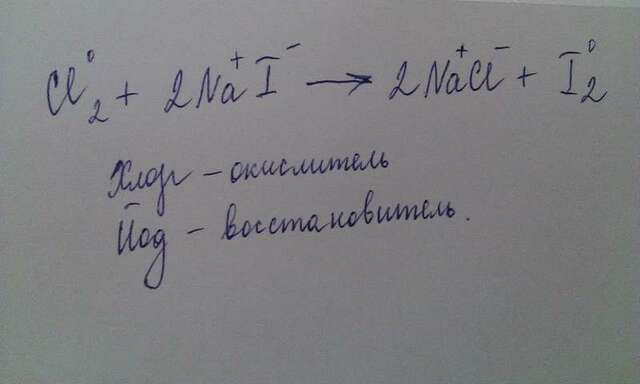 Cl₂⁰ + 2Na⁺I⁻ → 2Na⁺Cl⁻ + I₂⁰
Хлор – окислитель
Йод – восстановитель.